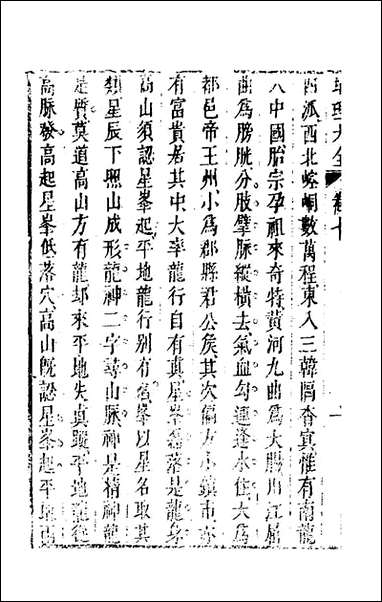 地理大全 卷十 一
西派西北崆峒數萬程東入三韓隔杳真惟有南龍
入中國胎宗孕祖來奇特黃河九曲為大腸川江屈
曲為膀胱分肢擘脈縱橫去氣血勾連逢水住大為
都邑帝王州小為郡縣君公侯其次偏方小鎮市亦
有富貴居其中大率龍行自有真星峯磊落是龍身
高山須認星峯起平地龍行別有名峯以星名取其
類星辰下照山成形龍神二字尋山脈神是精神龍
是質莫道高山方有龍却來平地失真蹤平地龍從
高脈發高起星峯低落穴高山既認星峯起平地